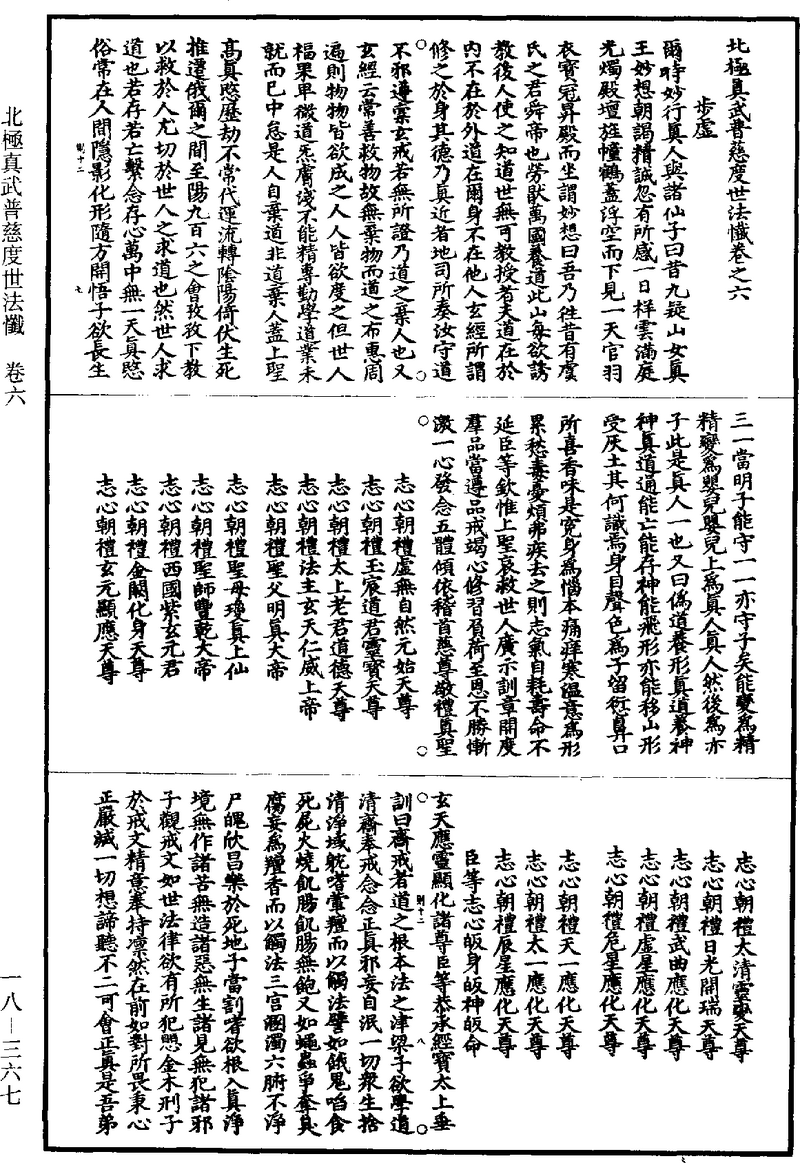 北極眞武普慈度世法懺卷之六
步虛
爾時妙行眞人與諸仙子曰昔九疑山女眞
王妙想朝謁精誠忽有所感一日祥雲滿庭
光燭殿壇旌幢鶴蓋浮空而下見一天官羽
衣寶冠昇殿而坐謂妙想曰吾乃往昔有虞
氏之君舜帝也勞猒萬國養道此山每欲誘
教後人使之知道世無可教授者夫道在於
內不在於外道在爾身不在他人玄經所謂
修之於身其德乃眞近者地司所奏汝守道
不邪違棄玄戒若無所證乃道之棄人也又
玄經云常善救物故無棄物而道之布惠周
遍則物物皆欲成之人人皆欲度之但世人
福果單微道炁膚淺不能精專勤學道業未
就而已中怠是人自棄道非道棄人蓋上聖
高眞愍歷劫不常代運流轉陰陽倚伏生死
推遷俄爾之間至陽九百六之會孜孜下教
以救於人尤切於世人之求道也然世人求
道也若存若亡繫念存心萬中無一天眞愍
俗常在人間隱影化形隨方開悟子欲長生
則十二
九
三一當明子能守一一亦守子矣能變爲精
精變爲嬰兒嬰兒上爲眞人眞人然後爲亦
子此是眞人一也又曰僞道養形眞道養神
神眞道通能亡能存神能飛形亦能移山形
受灰土其何識焉身目聲色爲子留愆鼻口
所喜香味是冤身爲惱本痛痒寒溫意爲形
累愁毒憂煩弗疾去之則志氣自耗壽命不
延臣等欽惟上聖哀救世人廣示訓章開度
羣品當遵品戒竭心修習負荷至恩不勝慚
激一心發念五體傾依稽首慈尊敬禮眞聖
志心朝禮虛無自然元始天尊
志心朝禮玉宸道君靈寶天尊
志心朝禮太上老君道德天尊
志心朝禮法主玄天仁威上帝
志心朝禮聖父明眞大帝
志心朝禮聖母瓊眞上仙
志心朝禮聖師豐乾大帝
志心朝禮西國紫玄元君
志心朝禮金闕化身天尊
志心朝禮玄元顯應天尊
志心朝禮太清靈變天尊
志心朝禮日光開瑞天尊
志心朝禮武曲應化天尊
志心朝禮虛星應化天尊
志心朝禮危星應化天尊
志心朝禮天一應化天尊
志心朝禮太一應化天尊
志心朝禮辰星應化天尊
臣等志心皈身皈神皈命
玄天應靈顯化諸尊臣等恭承經寶太上垂
則十二
八
訓曰齋戒者道之根本法之津梁子欲學道
清齋奉戒念念正眞邪妄自泯一切衆生捨
清淨域躭嗜葷羶而以觸法譬如餓鬼啗食
死屍火燒飢腸飢腸無飽又如蠅蟲爭奪臭
腐妄爲羶香而以觸法三宮圂濁六腑不淨
尸魄欣昌樂於死地子當割嗜欲根入眞淨
境無作諸苦無造諸惡無生諸見無犯諸邪
子觀戒文如世法律欲有所犯愳金木刑子
於戒文精意奉持凛然在前如對所畏秉心
正嚴誠一切想諦聽不二可會正眞是吾弟
北極真武普慈度世法懺　卷六
一八—三六七